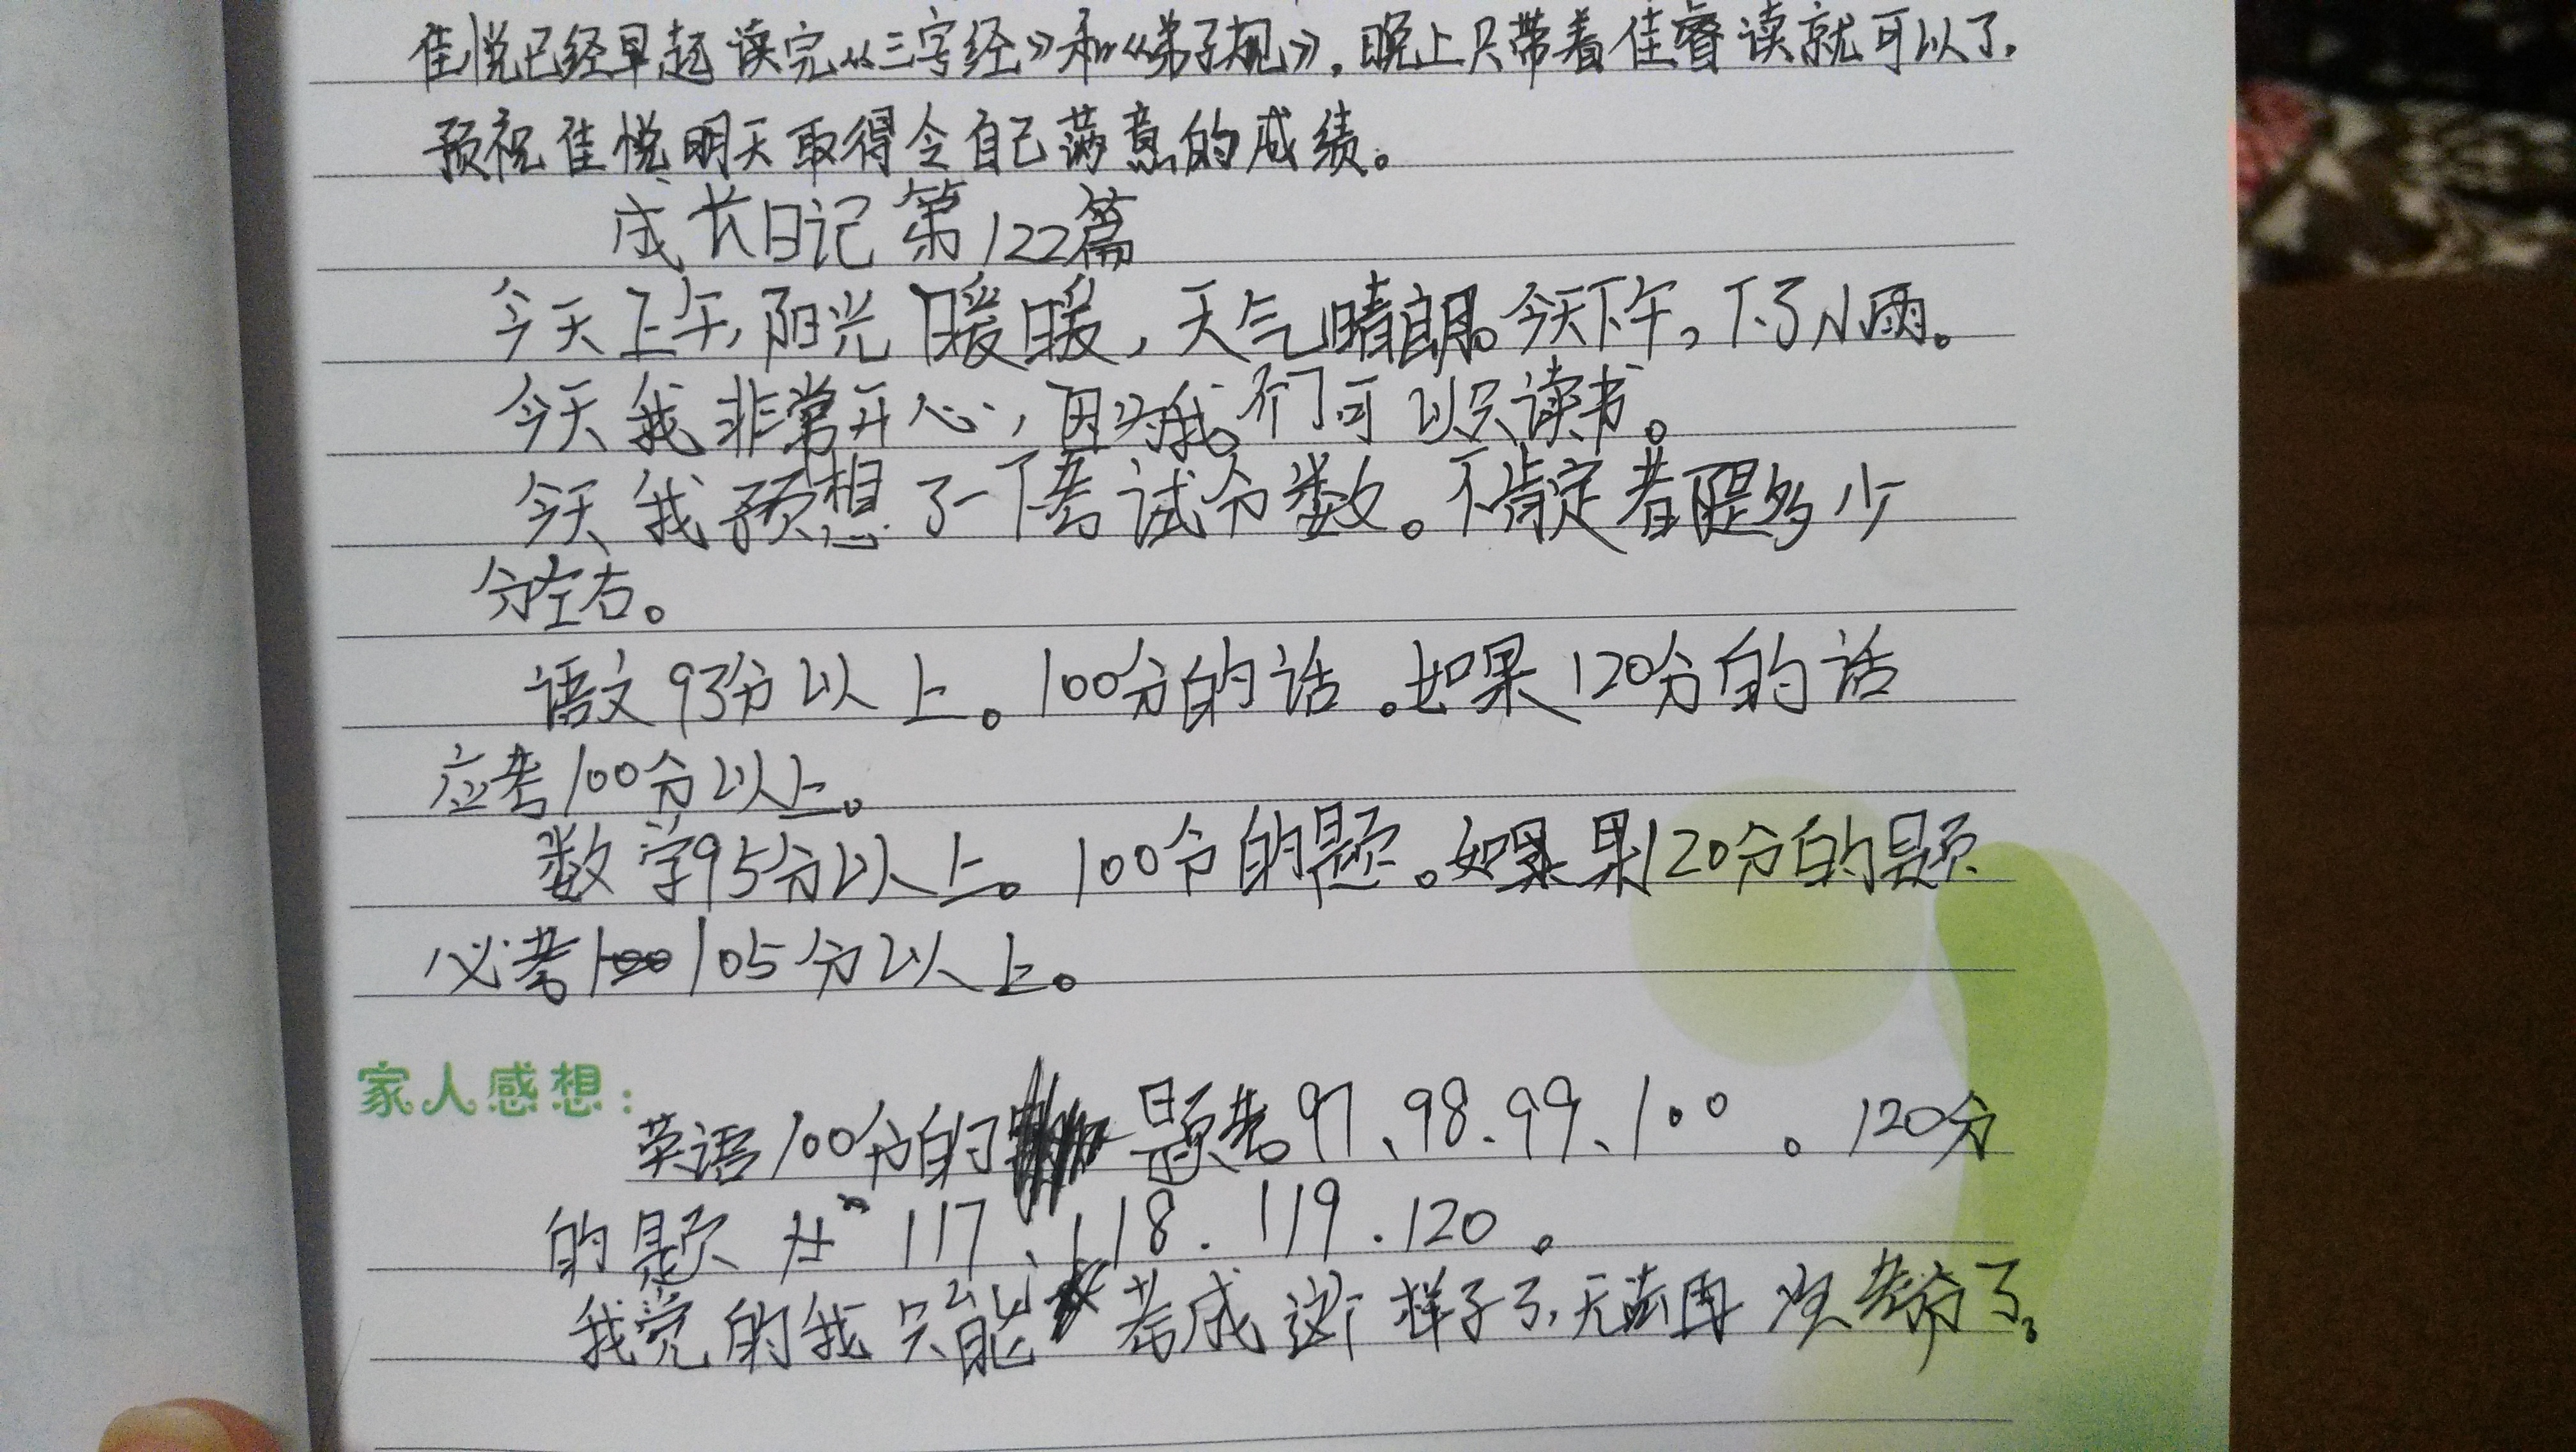 佳悦已经早起读完《三字经》和《弟子规》，晚上只带着佳睿读就可以了.
预祝佳悦明天取得令自己满意的成绩。
成长日记第122篇
今天上午,阳光暖暖,天气晴朗。今天下午,下了小雨。
今天我非常开心,因为我们可以只读书。
今天我预想了一下考试分数。不肯定者醒多少
分左右。
语文93分以上。100分的话。如果120分的话
应考100分以上。
数学95分以上。100分的题。如果果120分的题
必考100 105分以上。
家人感想:
英语100分的题考97、98、99、100。120分
的题 117、118.119.120。
我觉的我只能考成这个样子了,无法再 考分了。